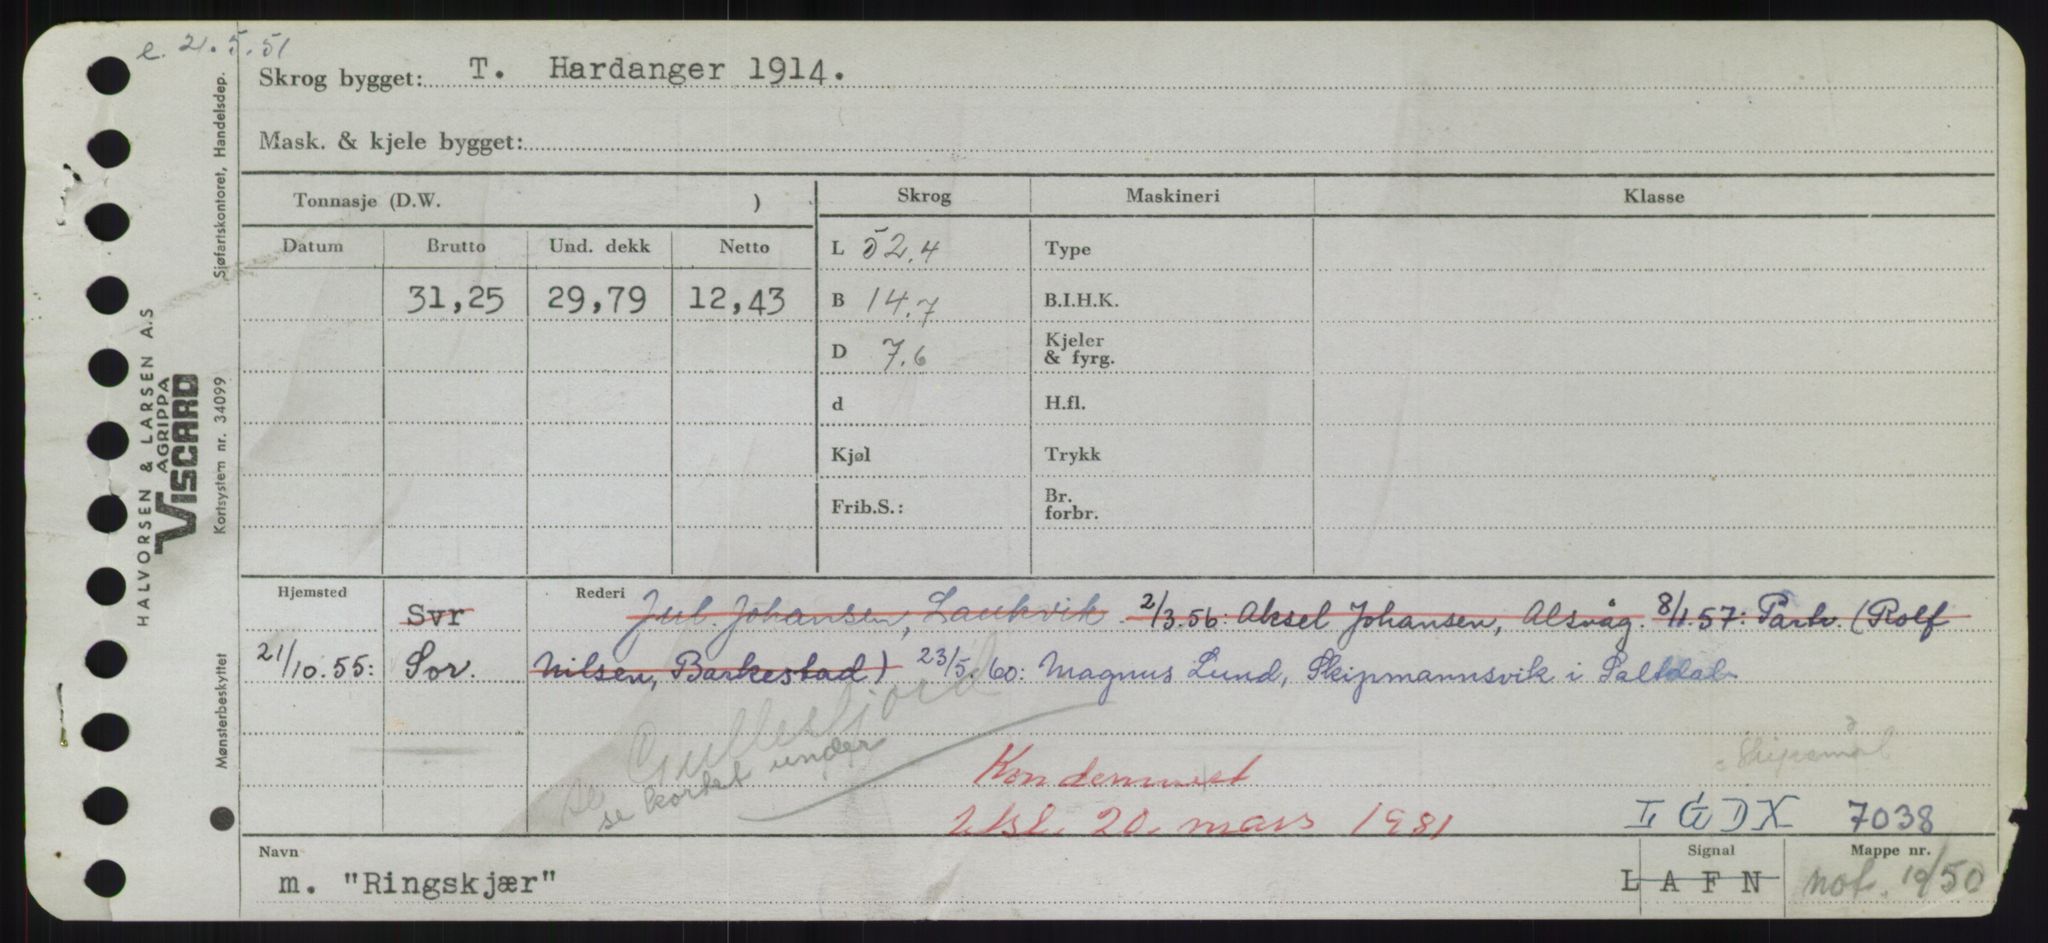 e. 21.5.51
Skrog bygget: T. Hardanger 1914.
Mask. & kjele bygget:
Tonnasje (D.W. )
Skrog
Maskineri
Klasse
Datum Brutto Und. dekk Netto
31,25 29,79 12,43
L 52.4
B 14.7
D 7.6
d
Kjøl
Frib.S.:
Type
B.I.H.K.
Kjeler
& fyrg.
H.fl.
Trykk
Br.
forbr.
Hjemsted Svr Rederi Jul. Johansen, Laukvik 2/3.56: Aksel Johansen, Alsvåg. 8/1.57: Partr. (Rolf
21/10.55: Sor. Nilsen, Barkestad) 23/5.60: Magnus Lund, Skipmannsvik i Saltdal
Gullesfjord
se kortet under
Kondemnert
20. mars 1981
Skipsmål
LGDX 7038
Navn
m. "Ringskjær"
Signal
LAFN
Mappe nr.
not. 19/50
HALVORSEN & LARSEN A.S
AGRIPPA
VISCARD
Sjøfartskontoret, Handelsdep.
Kortsystem nr. 34099
Mønsterbeskyttet